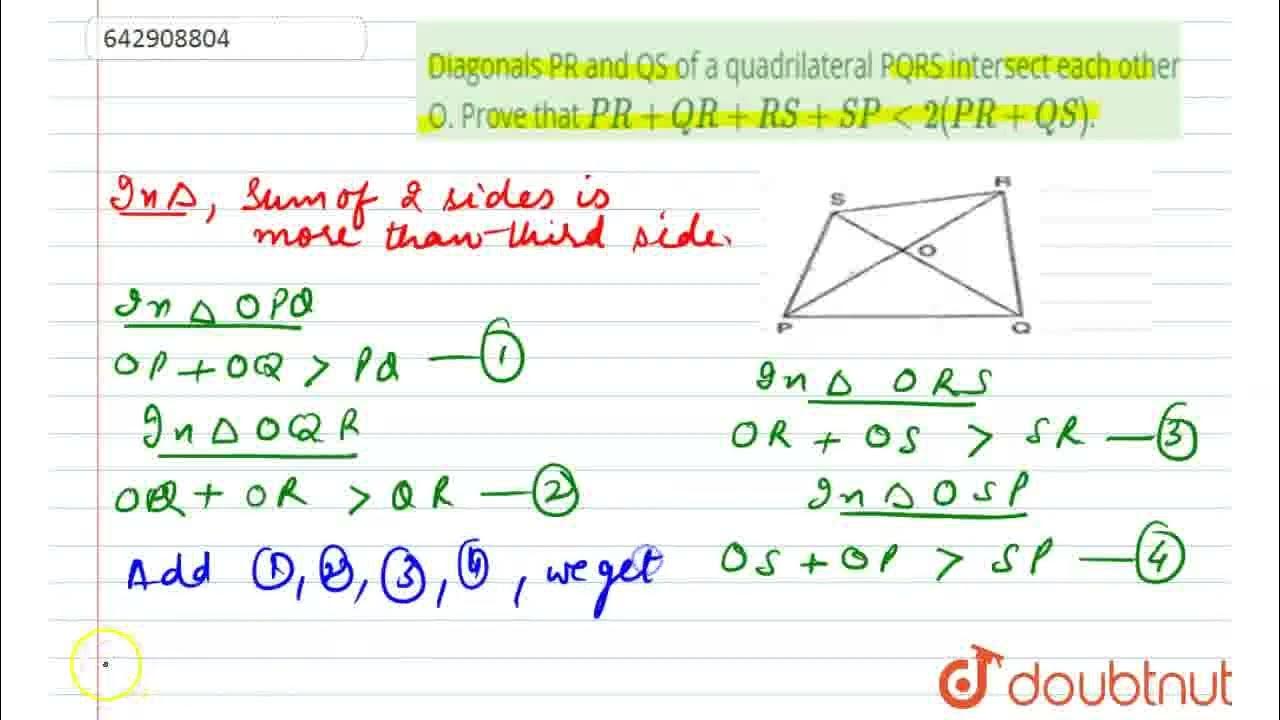 642908804
Diagonals PR and QS of a quadrilateral PQRS intersect each other
O. Prove that PR + QR + RS + SP < 2(PR + QS).
In Δ, Sum of 2 sides is
more than third side.
S
R
O
P
Q
In Δ OPQ
OP + OQ > PQ — ①
In Δ OQR
OQ + OR > QR — ②
In Δ ORS
OR + OS > SR — ③
In Δ OSP
OS + OP > SP — ④
Add ①, ②, ③, ④, we get
doubtnut